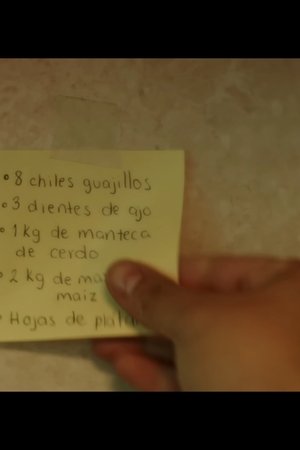 • 8 chiles guajillos
• 3 dientes de ajo
• 1 kg de manteca
de cerdo
• 2 kg de
maiz
• Hojas de